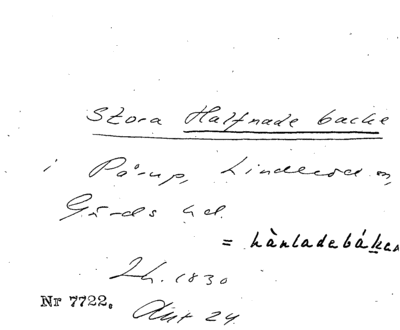 Stora Halfnade backe
i Pårup, Linderöd sn,
Gärds hd.
= hànladebáken
Lh. 1830
Nr 7722. Akt 24